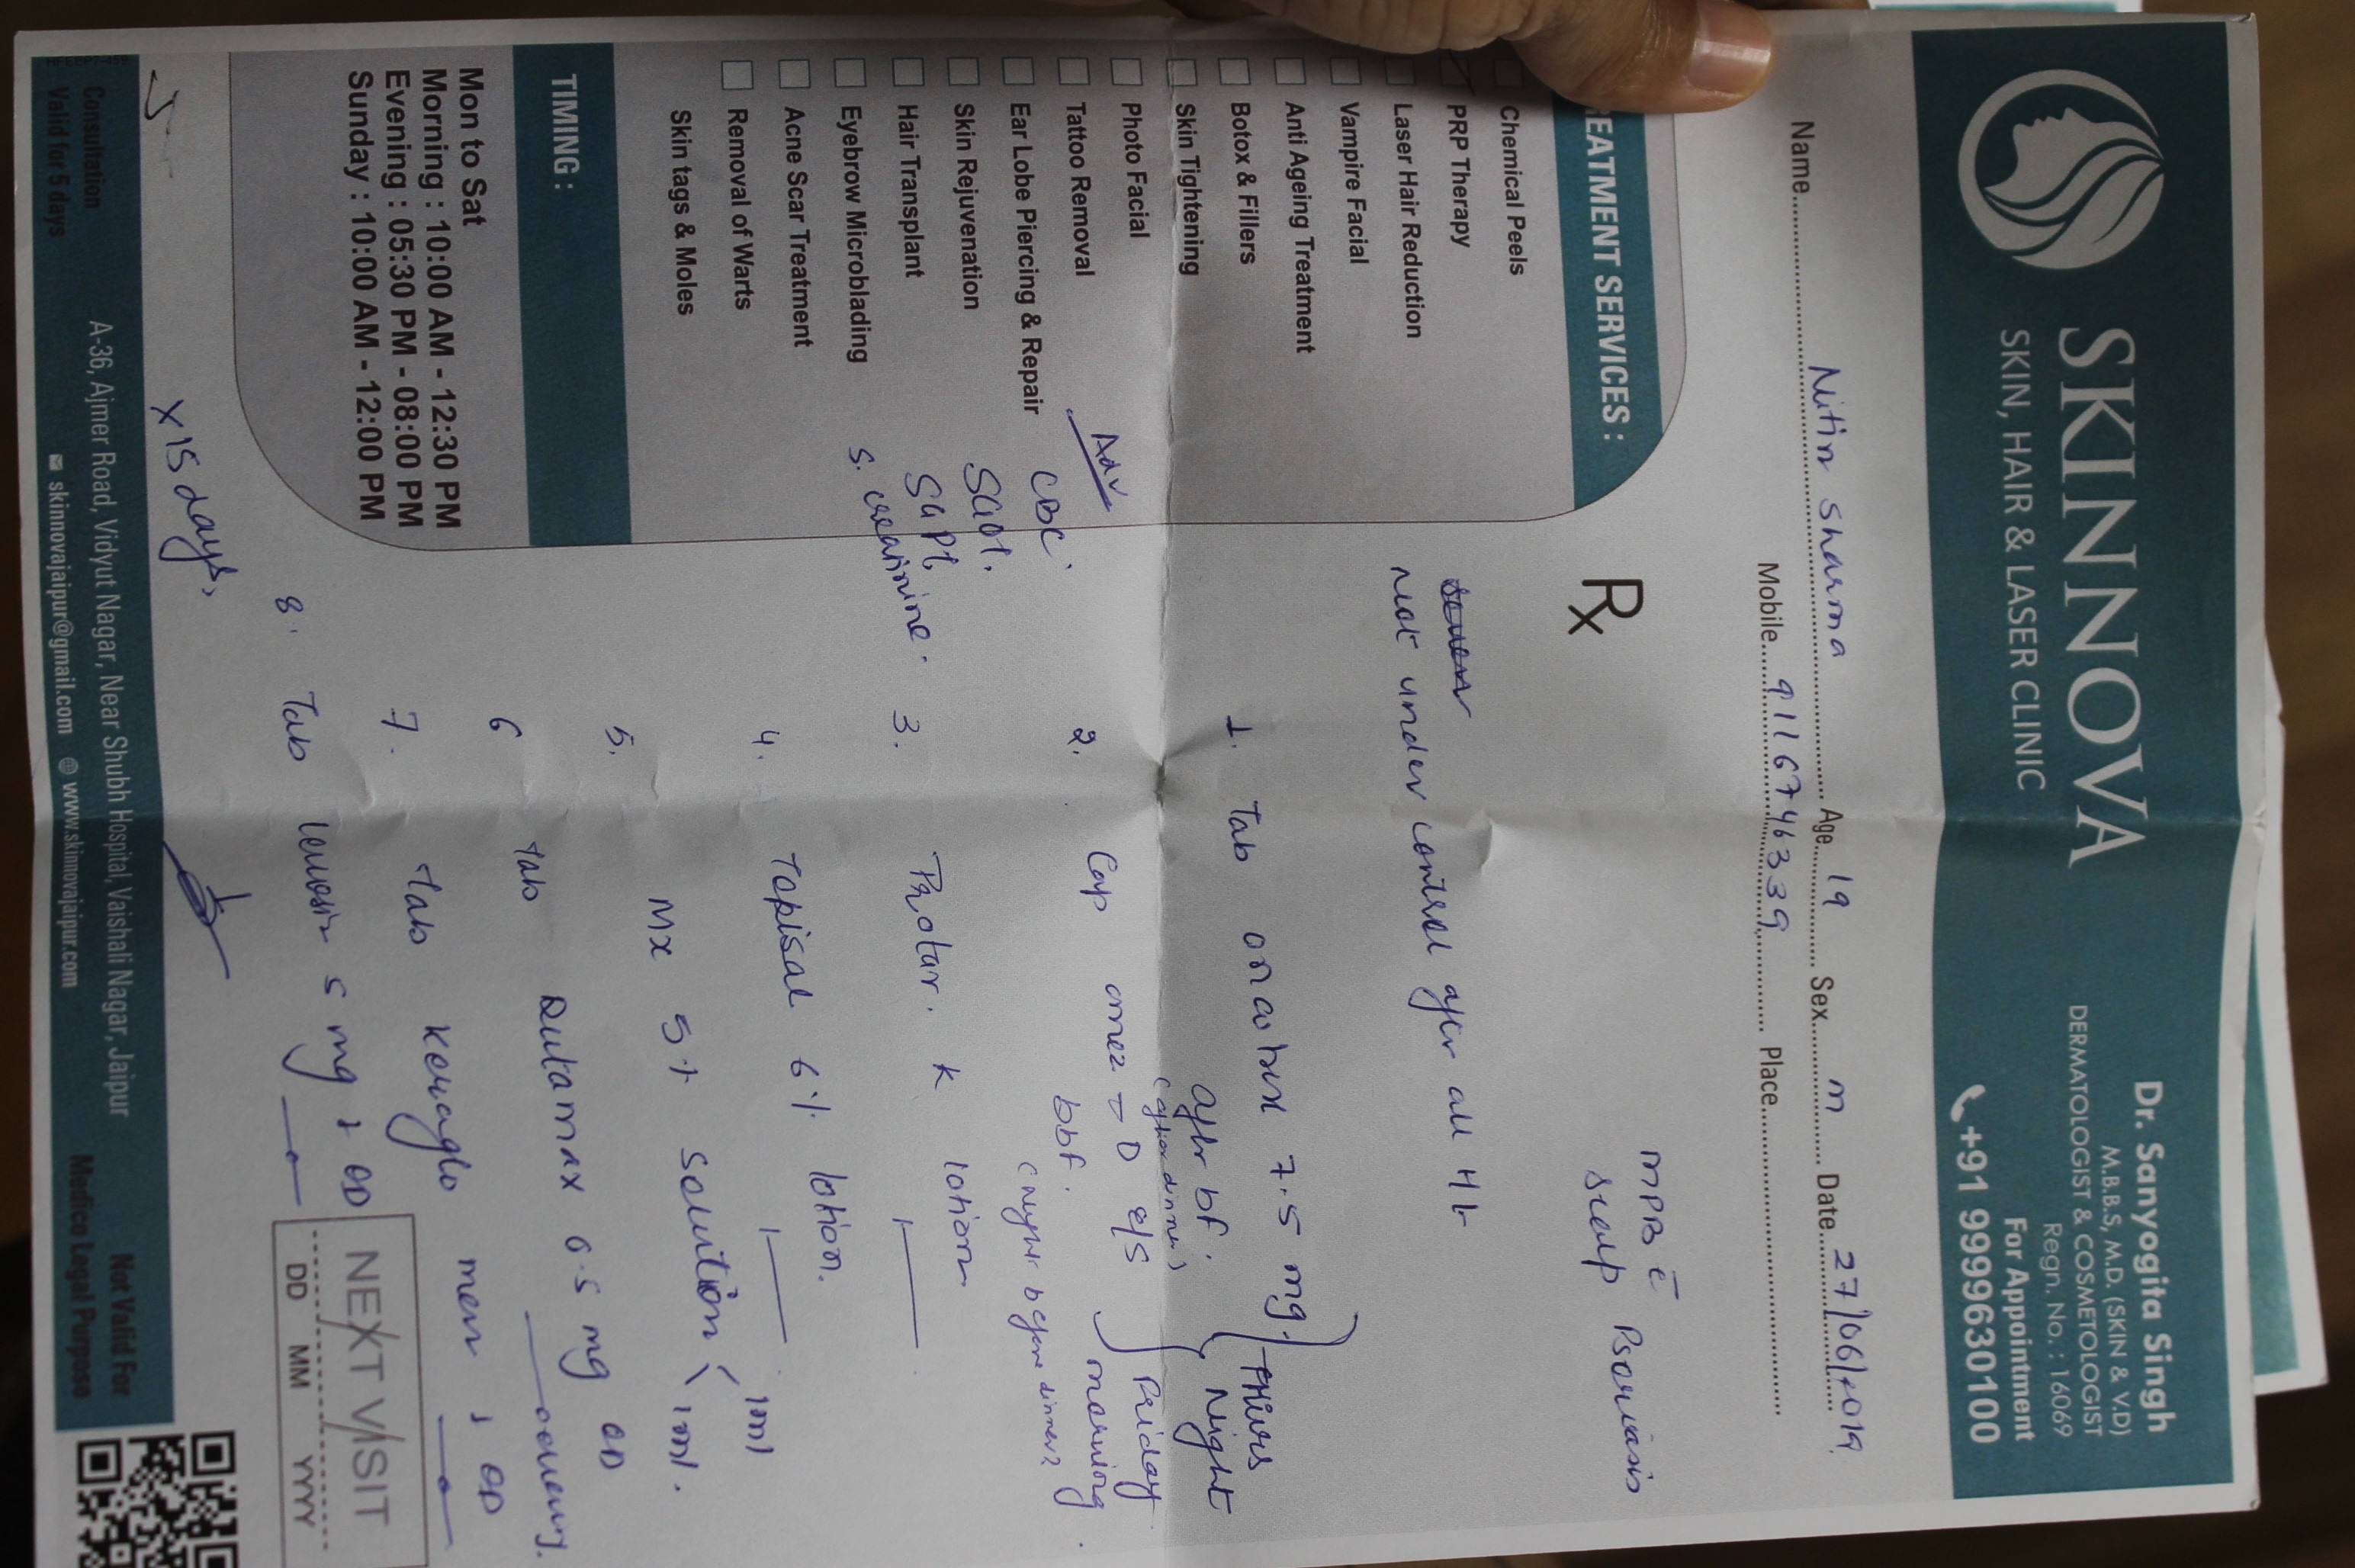 SKINNOVA
SKIN, HAIR & LASER CLINIC
Dr. Sanyogita Singh
M.B.B.S, M.D. (SKIN & V.D)
DERMATOLOGIST & COSMETOLOGIST
Regn. No. : 16069
For Appointment
+91 9999630100
Name Nitin Sharma Age 19 Sex M Date 27/06/2019
Mobile 9116746339 Place
EATMENT SERVICES :
Chemical Peels
PRP Therapy
Laser Hair Reduction
Vampire Facial
Anti Ageing Treatment
Botox & Fillers
Skin Tightening
Photo Facial
Tattoo Removal
Ear Lobe Piercing & Repair
Skin Rejuvenation
Hair Transplant
Eyebrow Microblading
Acne Scar Treatment
Removal of Warts
Skin tags & Moles
TIMING :
Mon to Sat
Morning : 10:00 AM - 12:30 PM
Evening : 05:30 PM - 08:00 PM
Sunday : 10:00 AM - 12:00 PM
Adv
CBC.
SGOT.
SGPT.
S. creatinine.
Rx
MPB c̄
scalp Psoriasis
not under control after all
1. Tab 7.5 mg. Thurs
after bf. Night
(after dinner)
2. Cap omez - D e/s Friday
bbf. morning.
(night before dinner)
3. Protar. K lotion
4. Topisal 6% lotion.
5. MX 5% solution 1ml
1ml.
6 Tab Dutamax 0.5 mg OD
7. Tab Keraglo men 1 OD
8. Tab 5 mg 1 OD
x 15 days.
NEXT VISIT
DD MM YYYY
Consultation
Valid for 5 days
A-36, Ajmer Road, Vidyut Nagar, Near Shubh Hospital, Vaishali Nagar, Jaipur
skinnovajaipur@gmail.com www.skinnovajaipur.com
Not Valid For
Medico Legal Purpose